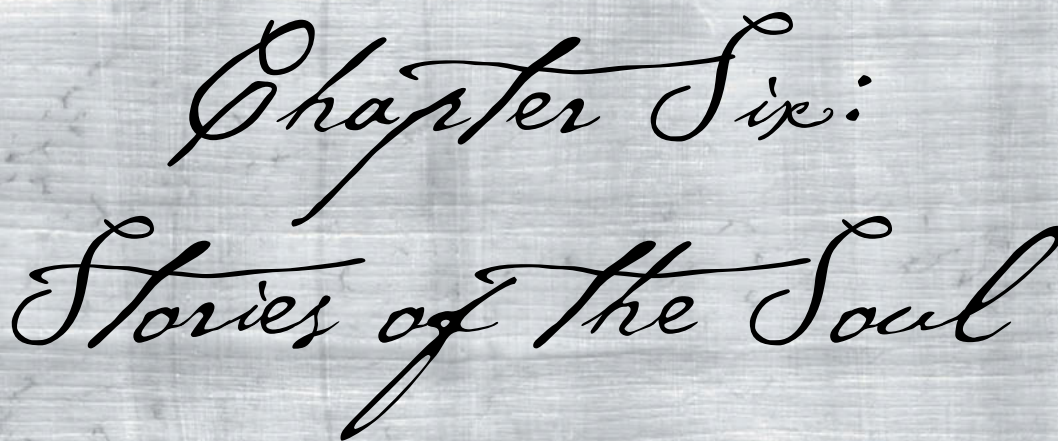 Chapter Six:
Stories of the Soul